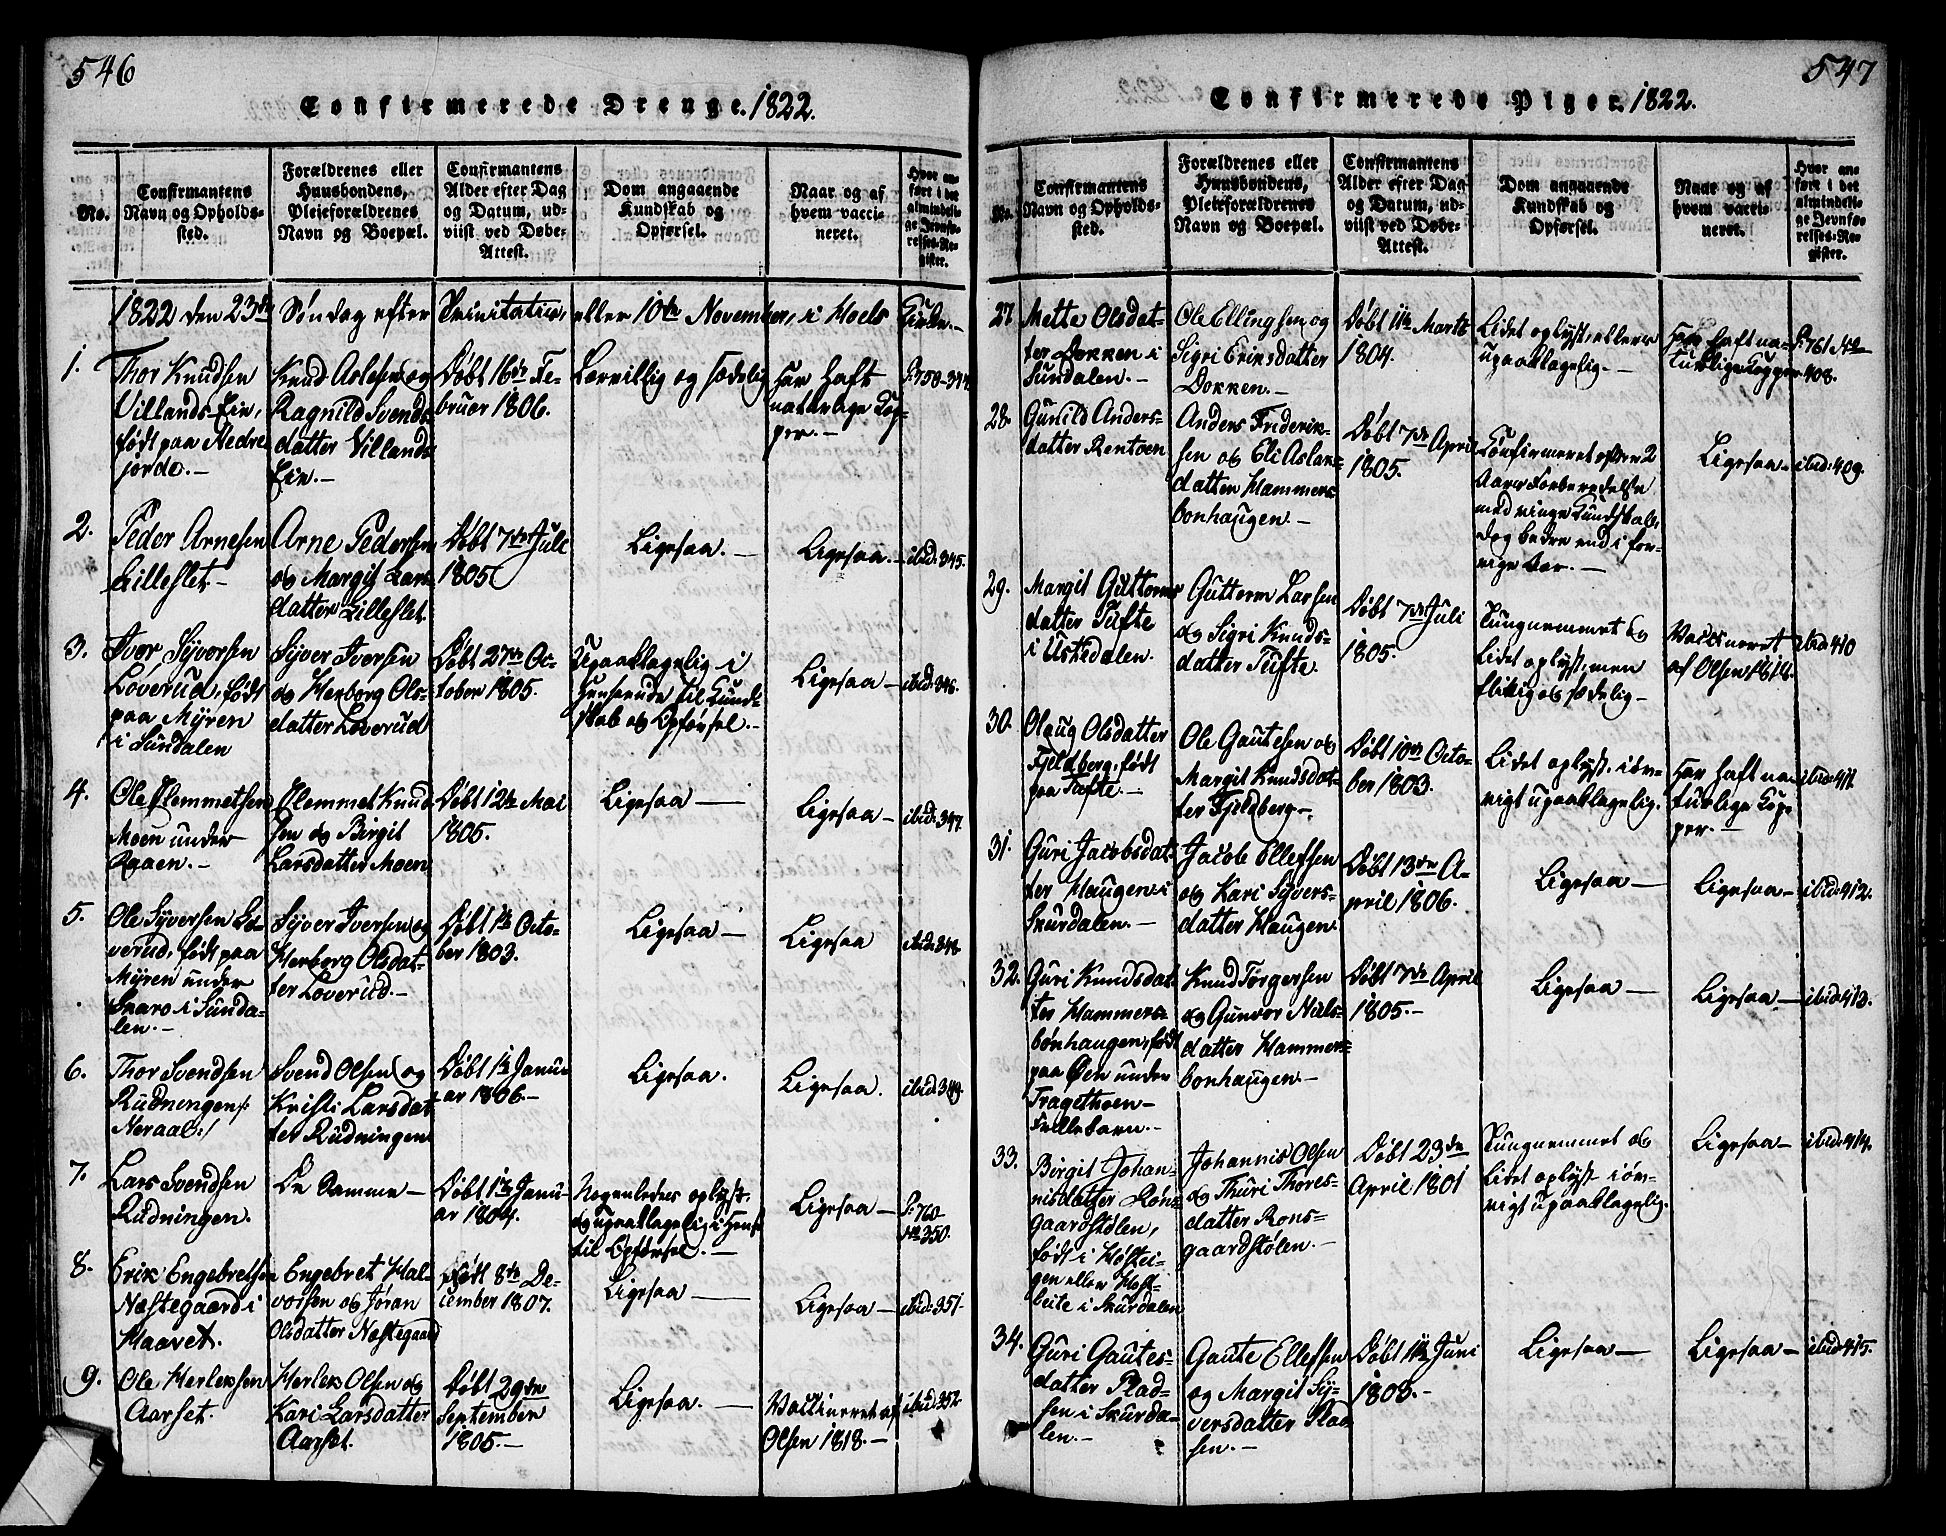 546
Confirmerede Drenge. 1822.
No.
Confirmantens
Navn og Opholds-
sted.
Forældrenes eller
Huusbondens,
Pleieforældrenes
Navn og Boepæl.
Confirmantens
Alder efter Dag
og Datum, ud-
viist ved Døbe-
Attest.
Dom angaaende
Kundskab og
Opførsel.
Naar og af
hvem vacci-
neret.
Hvor an-
ført i det
almindeli-
ge Jevnfø-
relses-Re-
gister.
1822 den 23de Søndag efter Trinitatis, eller 10de November, i Hoels Kirke.-
1.
Thor Knudsen
Villands Eie,
født paa Nedre
jorde.-
Knud Aslesen og
Ragnild Svends-
datter Villands
Eie.-
Døbt 16de Fe-
bruar 1806.
Lærvillig og sædelig
Har haft
naturlige Kop-
per.-
P. 750-344
2.
Peder Arnesen
Lilleslet-
Arne Pedersen
og Margit Lars-
datter Lilleslet.
Døbt 7de Juli
1805
Ligesaa.-
Ligesaa.-
ibid: 345.
3.
Iver Syversen
Løverud, født
paa Myren
i Sundalen
Syver Iversen
og Herborg Ols-
datter Løverud
Døbt 27de Oc-
tober 1805.
Upaaklagelig i
Henseende til Kund-
skab og Opførsel.-
Ligesaa-
ibid: 346.
4.
Ole Clemmetsen
Moen under
Raaen.-
Clemmet Knud-
sen og Birgit
Larsdatter Moen
Døbt 12te Mai
1805.
Ligesaa-
Ligesaa-
ibid: 347.
5.
Ole Syversen Lø-
verud, født paa
Myren under
Skaro i Sunda-
len.-
Syver Iversen og
Herborg Olsdat-
ter Løverud.-
Døbt 1te Octo-
ber 1803.
Ligesaa-
Ligesaa
ibid: 348
6.
Thor Svendsen
Rudningen /:
Neraal:/
Svend Olsen og
Kristi Larsdat-
ter Rudningen
Døbt 1te Janu-
ar 1806-
Ligesaa.
Ligesaa.
ibid: 349.
7.
Lars Svendsen
Rudningen.
De Samme-
Døbt 1te Janu-
ar 1804.
Nogenledes oplyst
og upaaklagelig i Hens.
til Opførsel.-
Ligesaa-
P: 760-
350.
8.
Erik Engebretsen
Næstegaard i
Haavet.
Engebret Hal-
vorsen og Jøran
Olsdatter Næstegaard
Født 8de De-
cember 1807.
Ligesaa-
Ligesaa-
ibid: 351.
9.
Ole Herleksen
Aarset.
Herlek Olsen og
Kari Larsdatter
Aarset.
Døbt 29de
September
1805.-
Ligesaa.-
Vaccineret af
Olsen 1818.-
ibid: 352.
547
Confirmerede Piger. 1822.
No.
Confirmantens
Navn og Opholds-
sted.
Forældrenes eller
Huusbondens,
Pleieforældrenes
Navn og Boepæl.
Confirmantens
Alder efter Dag
og Datum, ud-
viist ved Døbe-
Attest.
Dom angaaende
Kundskab og
Opførsel.
Naar og af
hvem vacci-
neret.
Hvor an-
ført i det
almindeli-
ge Jevnfø-
relses-Re-
gister.
27.
Mette Olsdat-
ter Dokken i
Sundalen.-
Ole Ellingsen og
Sigri Eriksdatter
Dokken.-
Døbt 11te Marts
1804.
Lidet oplyst, ellers
upaaklagelig.-
Har haft na-
turlige Kopper
P: 761
408.
28.
Gunild Anders-
datter Rentoen
Anders Friderik-
sen og Eli Aslak-
datter Hammers-
bonhaugen.-
Døbt 7de April
1805.
Confirmeret efter 2
Aars Forberedelse
med ringe Kundskab,
dog bedre end i for-
rige Aar.-
Ligesaa.-
ibid: 409.
29.
Margit Guttorms-
datter Tufte
i Ustedalen.
Gutterm Larsen
og Sigri Knuds-
datter Tufte.
Døbt 7de Juli
1805.
Tungnemmet og
Lidet oplyst, men
flitig og sædelig-
Vaccineret
af Olsen, 1818.
ibid 410
30.
Olaug Olsdatter
Fjeldberg, født
paa Tufte.-
Ole Gautesen og
Margit Knudsdat-
ter Fjeldberg-.
Døbt 10de Octo-
ber 1803.
Lidet oplyst, iøv-
rigt upaaklagelig.
Har haft na-
turlige Kop-
per.-
ibid: 411.
31.
Guri Jacobsdat-
ter Haugen i
Skurdalen.-
Jacob Ellefsen
og Kari Syvers-
datter Haugen.
Døbt 13de A-
pril 1806.
Ligesaa-
Ligesaa-
ibid: 412.
32.
Guri Knudsdat-
ter Hammers-
bønhaugen, født
paa Øen under
Tragethoen-
Fellebarn.-
Knud Torgersen
og Gunvor Niels-
datter Hammers-
bonhaugen.-
Døbt 7de April
1805.-
Ligesaa-
Ligesaa-
ibid: 413.
33.
Birgit Johan-
nisdatter Røns-
gaardstølen,
født i
gen eller
leite i Skurdalen
Johannis Olsen
og Thuri Thores-
datter Røns-
gaardstølen.-
Døbt 23de
April 1801
Tungnemmet og
Lidet oplyst, iøv-
rigt upaaklagelig.
Ligesaa-
ibid: 414.
34.
Guri Gautes-
datter Plad-
sen i Skurda-
len.-
Gaute Ellefsen
og Margit Sy-
versdatter Plad-
sen.-
Døbt 11te Juni
1808.-
Ligesaa-
Ligesaa-
ibid 415.